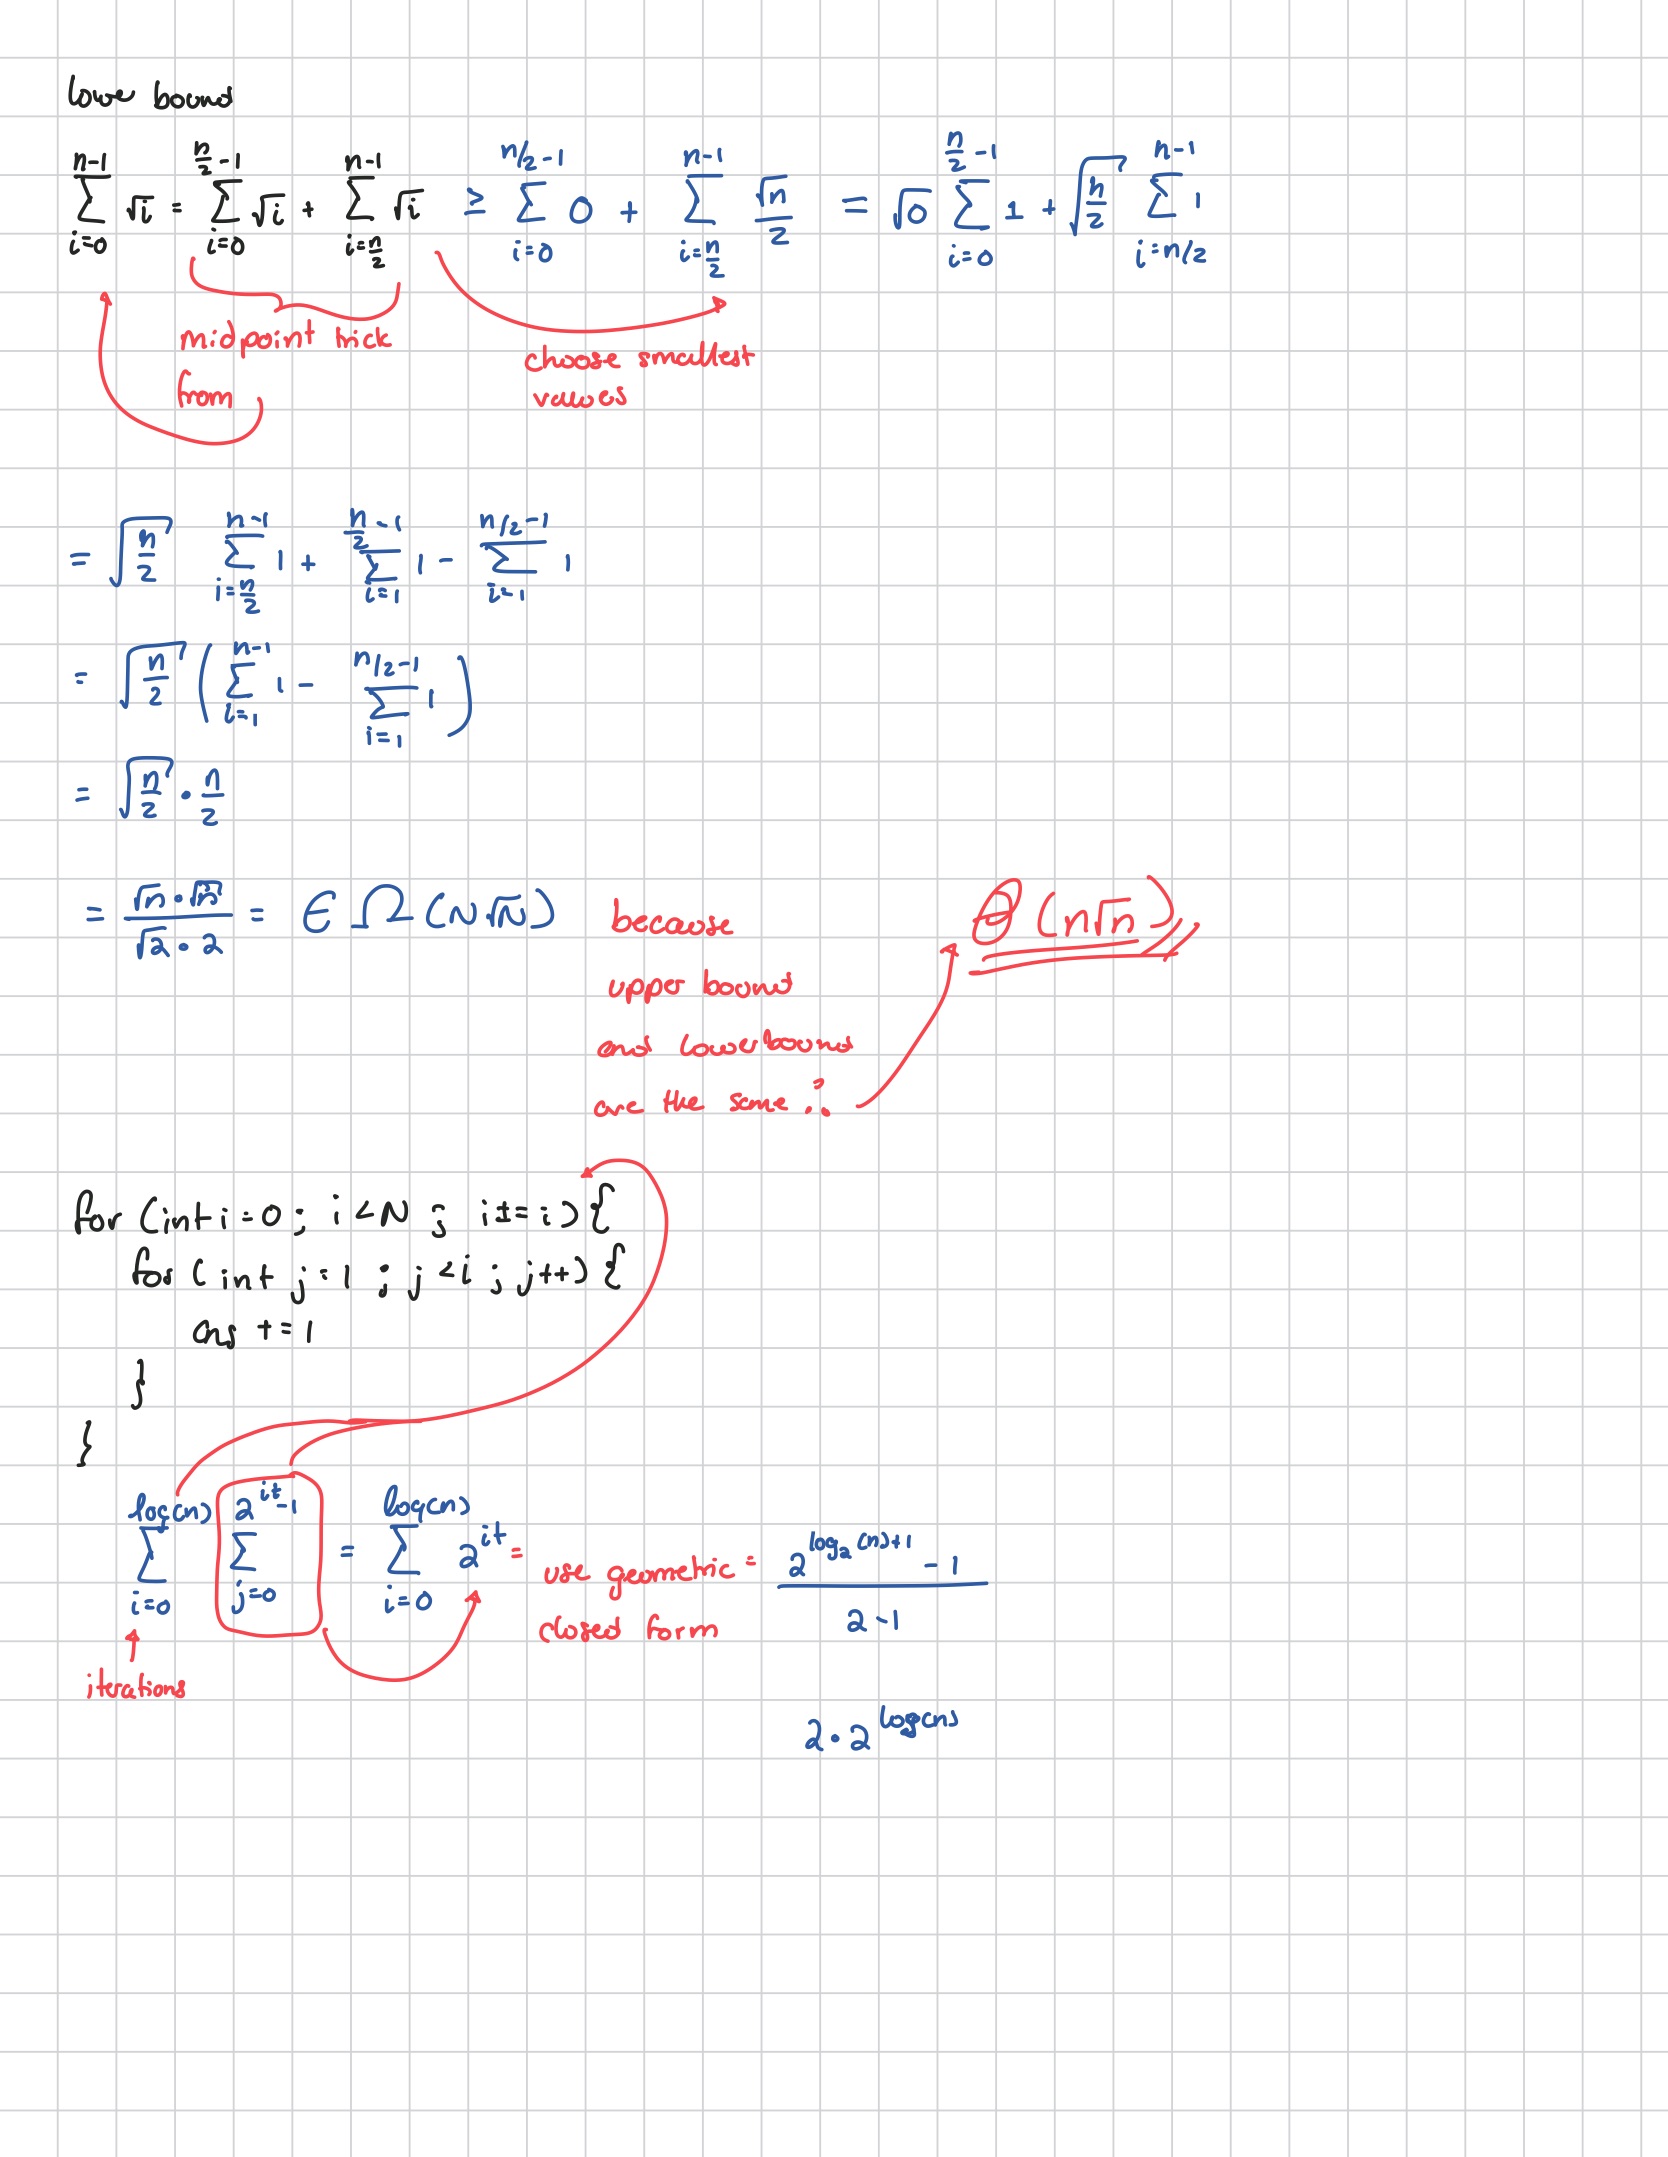 lower bound
\sum_{i=0}^{n-1} \sqrt{i} = \sum_{i=0}^{\frac{n}{2}-1} \sqrt{i} + \sum_{i=\frac{n}{2}}^{n-1} \sqrt{i} ≥ \sum_{i=0}^{n/2-1} 0 + \sum_{i=\frac{n}{2}}^{n-1} \frac{\sqrt{n}}{2} = \sqrt{0} \sum_{i=0}^{\frac{n}{2}-1} 1 + \sqrt{\frac{n}{2}} \sum_{i=n/2}^{n-1} 1
midpoint trick
from
choose smallest
values
= \sqrt{\frac{n}{2}} \sum_{i=\frac{n}{2}}^{n-1} 1 + \sum_{i=1}^{\frac{n}{2}-1} 1 - \sum_{i=1}^{n/2-1} 1
= \sqrt{\frac{n}{2}} ( \sum_{i=1}^{n-1} 1 - \sum_{i=1}^{n/2-1} 1 )
= \sqrt{\frac{n}{2}} • \frac{n}{2}
= \frac{\sqrt{n} • \sqrt{n}}{\sqrt{2} • 2} = ∈ Ω (N\sqrt{N})
because
upper bound
and lowerbound
are the same ∴
θ (n\sqrt{n})
for (int i = 0 ; i < N ; i += i) {
for (int j = 1 ; j < i ; j++) {
ans += 1
}
}
\sum_{i=0}^{log(n)} \sum_{j=0}^{2^{it}-1} = \sum_{i=0}^{log(n)} 2^{it} = use geometric = \frac{2^{log_2(n)+1} - 1}{2-1}
closed form
iterations
2 • 2^{log(n)}